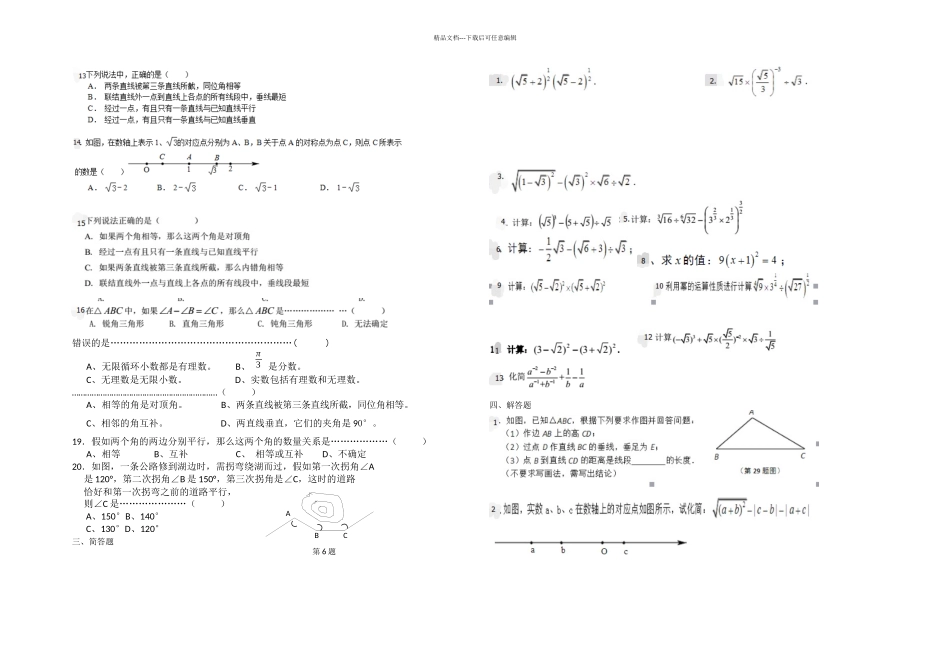 精品文档---下载后可任意编辑
13下列说法中，正确的是（　　）
A． 两条直线被第三条直线所截，同位角相等
B． 联结直线外一点到直线上各点的所有线段中，垂线最短
C． 经过一点，有且只有一条直线与已知直线平行
D． 经过一点，有且只有一条直线与已知直线垂直
14. 如图，在数轴上表示 1、√3的对应点分别为 A、B，B 关于点 A 的对称点为点 C，则点 C 所表示
的数是（　　）
C A B
O 1 √3 2
A． √3－2 B． 2－√3 C． √3－1 D． 1－√3
15下列说法正确的是（　　）
A. 如果两个角相等，那么这两个角是对顶角
B. 经过一点有且只有一条直线与已知直线平行
C. 如果两条直线被第三条直线所截，那么内错角相等
D. 联结直线外一点与直线上各点的所有线段中，垂线段最短
16在△ABC中，如果∠A−∠B=∠C，那么△ABC是……………… …（　　）
A. 锐角三角形 B. 直角三角形 C. 钝角三角形 D. 无法确定
错误的是…………………………………………………(　　)
A、无限循环小数都是有理数。 B、π/3 是分数。
C、无理数是无限小数。 D、实数包括有理数和无理数。
………………………………………………………（　　）
A、相等的角是对顶角。 B、两条直线被第三条直线所截，同位角相等。
C、相邻的角互补。 D、两直线垂直，它们的夹角是 90°。
19．假如两个角的两边分别平行，那么这两个角的数量关系是………………（　　）
A、相等 B、互补 C、 相等或互补 D、不确定
20．如图，一条公路修到湖边时，需拐弯绕湖而过，假如第一次拐角∠A
是 120°，第二次拐角∠B 是 150°，第三次拐角是∠C，这时的道路
恰好和第一次拐弯之前的道路平行，
则∠C 是…………………（　　）
A、150° B、140°
C、130° D、120°
A
B C
第 6 题
三．简答题
1. (√5+2)^(1/2) (√5−2)^(1/2)．
2. √15×(√5/3)^(−3)÷√3．
3. √((1−√3)²)−(√3)²×√6÷√2．
4．计算：(√5)⁰−(5+√5)÷√5
5.计算：
6．计算：−1/2√3−(√6+3)÷√3；
8 、求 x 的值：9(x+1)²=4；
9 计算：(√5−√2)²×(√5+√2)²
10 利用幂的运算性质进行计算
11 计算：(3−√2)²−(3+√2)²．
12 计算
13 化简 (a⁻²−b⁻²)/(a⁻¹+b⁻¹)+1/b−1/a
四、解答题
1．如图，已知△ABC，根据下列要求作图并回答问题：
（1）作边 AB 上的高 CD；
（2）过点 D 作直线 BC 的垂线，垂足为 E；
（3）点 B 到直线 CD 的距离是线段________的长度．
（不要求写画法，需写出结论）
A
B C
（第 29 题图）
2 .如图，实数 a、b、c 在数轴上的对应点如图所示，试化简：√((a+b)²)−|c−b|−|a+c|
a b O c